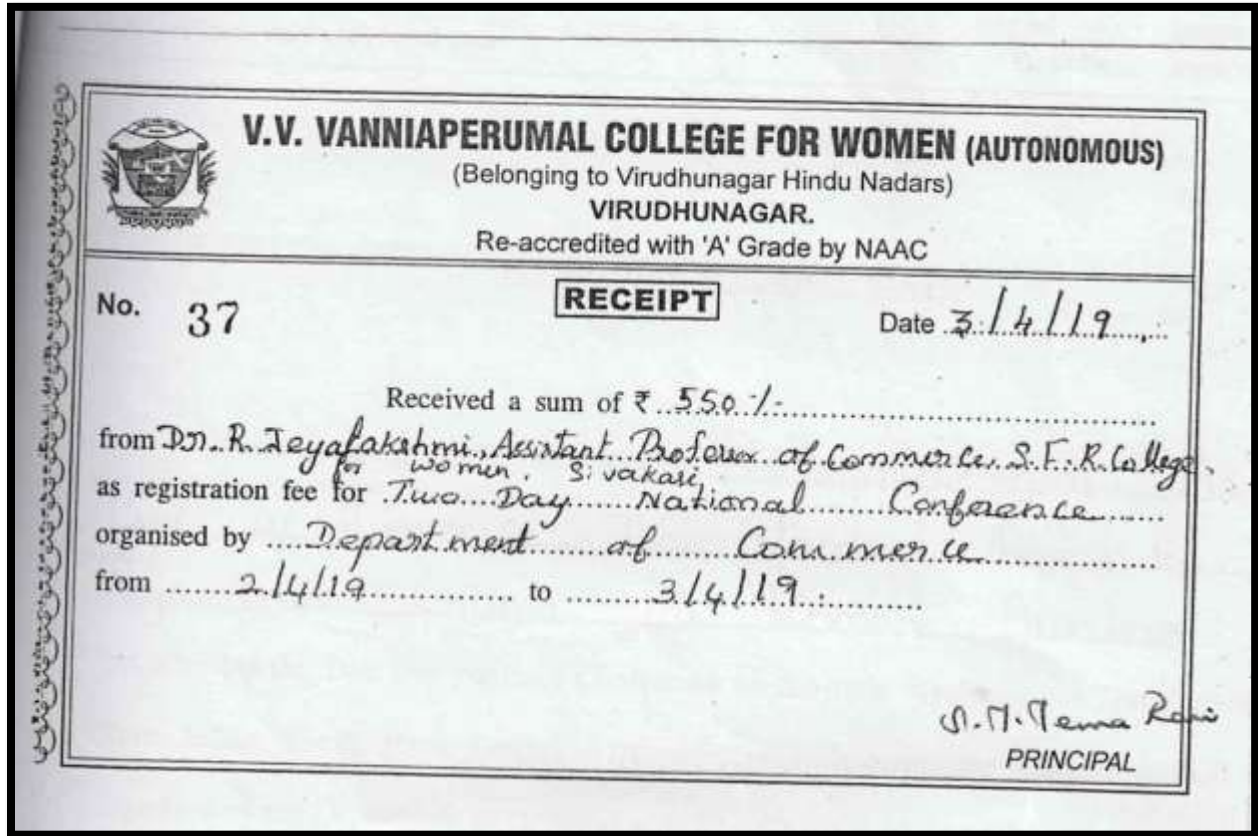 V.V. VANNIAPERUMAL COLLEGE FOR WOMEN (AUTONOMOUS)
(Belonging to Virudhunagar Hindu Nadars)
VIRUDHUNAGAR.
Re-accredited with 'A' Grade by NAAC
No. 37 RECEIPT Date 3/4/19
Received a sum of ₹ 550/-
from Dr. R. Jeyalakshmi, Assistant Professor of Commerce, S.F.R. College
for women, Sivakasi
as registration fee for Two Day National Conference
organised by Department of Commerce
from 2/4/19 to 3/4/19
Rani
PRINCIPAL